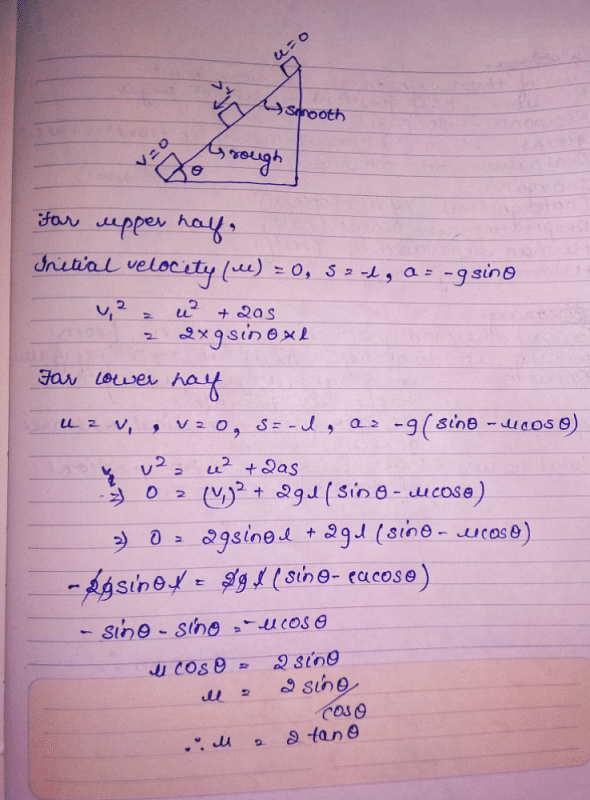 u=0
v₁
smooth
v=0
rough
θ
For upper half,
Initial velocity (u) = 0, s = -l, a = -g sinθ
v₁² = u² + 2as
= 2×g sinθ×l
For lower half
u = v₁, v = 0, s = -l, a = -g(sinθ - μcosθ)
v² = u² + 2as
⇒ 0 = (v₁)² + 2gl(sinθ - μcosθ)
⇒ 0 = 2gsinθl + 2gl(sinθ - μcosθ)
-2gsinθl = 2gl(sinθ - μcosθ)
- sinθ - sinθ = -μcosθ
μcosθ = 2sinθ
μ = 2sinθ/cosθ
∴ μ = 2tanθ